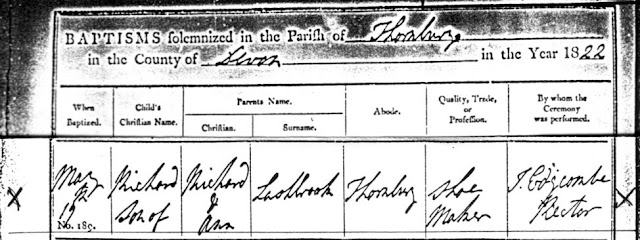 BAPTISMS solemnized in the Parish of Thornbury
in the County of Devon in the Year 1822
When Baptized.
Child's Christian Name.
Parents Name.
Christian.
Surname.
Abode.
Quality, Trade, or Profession.
By whom the Ceremony was performed.
May
No. 189.
Richard
Son of
Richard
&
Ann
Lashbrook
Thornbury
Shoe
Maker
J. Edgcombe
Rector